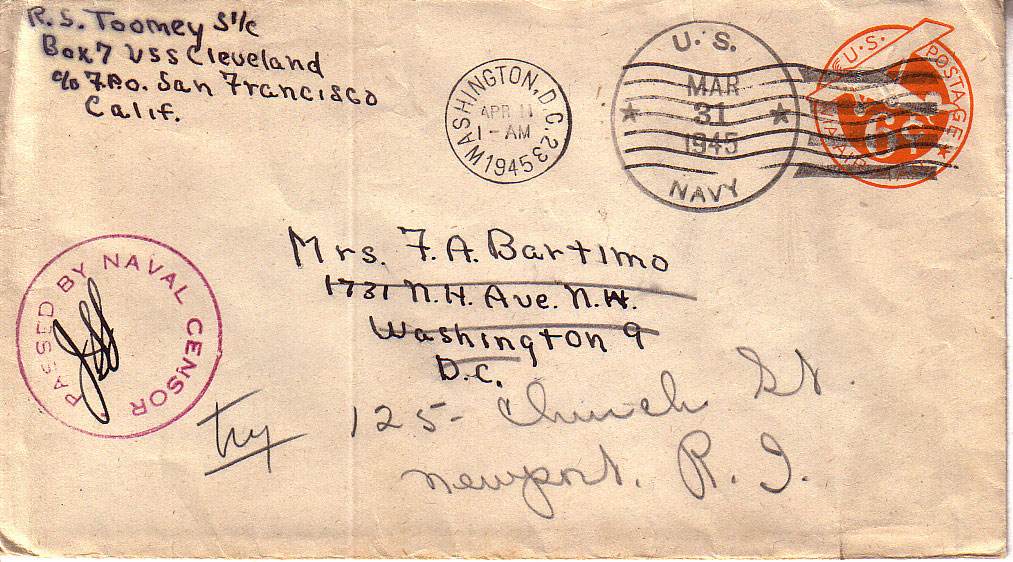 R. S. Toomey S1/c
Box 7 USS Cleveland
c/o F.P.O. San Francisco
Calif.
WASHINGTON, D.C. 23
APR 11
1-AM
1945
U. S.
MAR
31
1945
NAVY
U.S. POSTAGE
6¢
VIA AIR MAIL
PASSED BY NAVAL CENSOR
Mrs. F. A. Bartimo
1731 N.H. Ave. N.W.
Washington 9
D.C.
Try 125- Church St.
Newport. R. I.